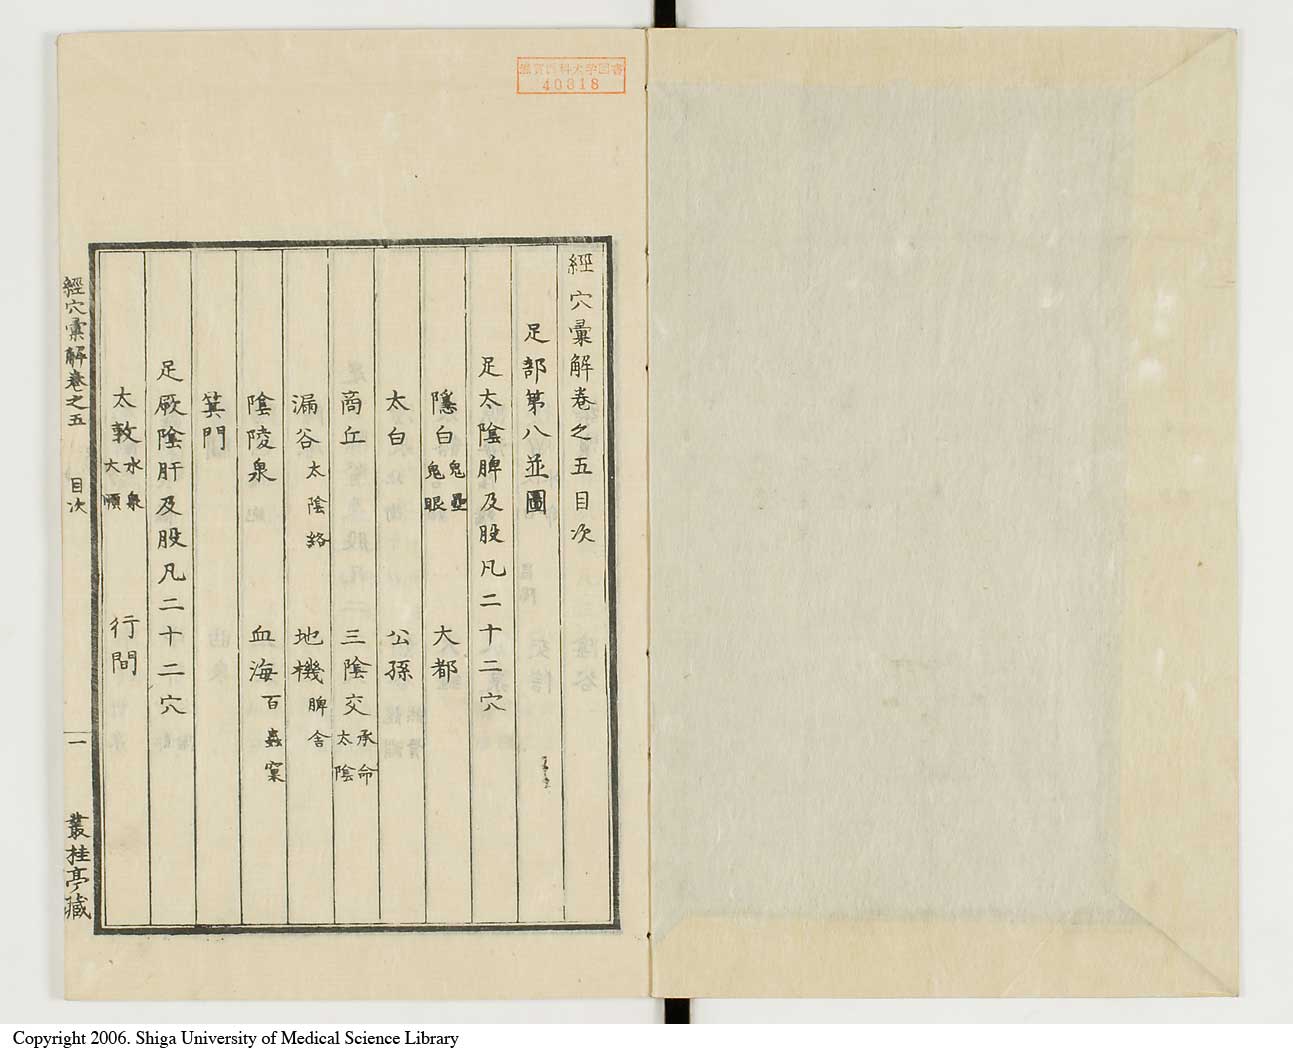 滋賀医科大学図書
40818
經穴彙解卷之五目次
足部第八並圖
足太陰脾及股凡二十二穴
隱白 鬼壘 鬼眼 大都
太白 公孫
商丘 三陰交 承命 太陰
漏谷 太陰絡 地機 脾舍
陰陵泉 血海 百蟲窠
箕門
足厥陰肝及股凡二十二穴
大敦 水泉 大順 行間
經穴彙解卷之五 目次 一 叢桂亭藏
Copyright 2006. Shiga University of Medical Science Library